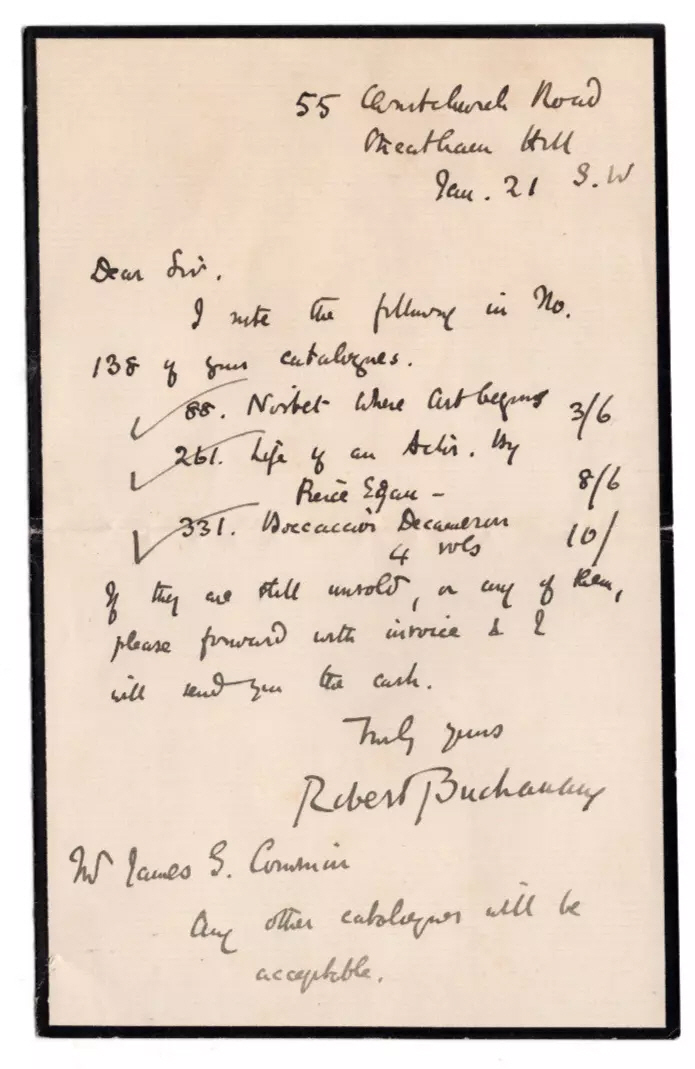 55 Christchurch Road
Streatham Hill
Jan. 21 S.W
Dear Sir.
I note the following in No.
138 of your catalogues.
88. Nisbet Where Art begins 3/6
261. Life of an Actor. By
Pierce Egan – 8/6
331. Boccaccio's Decameron 10/
4 vols
If they are still unsold, or any of them,
please forward with invoice & I
will send you the cash.
Truly yours
Robert Buchanan
Mr James G. Commin
Any other catalogues will be
acceptable.